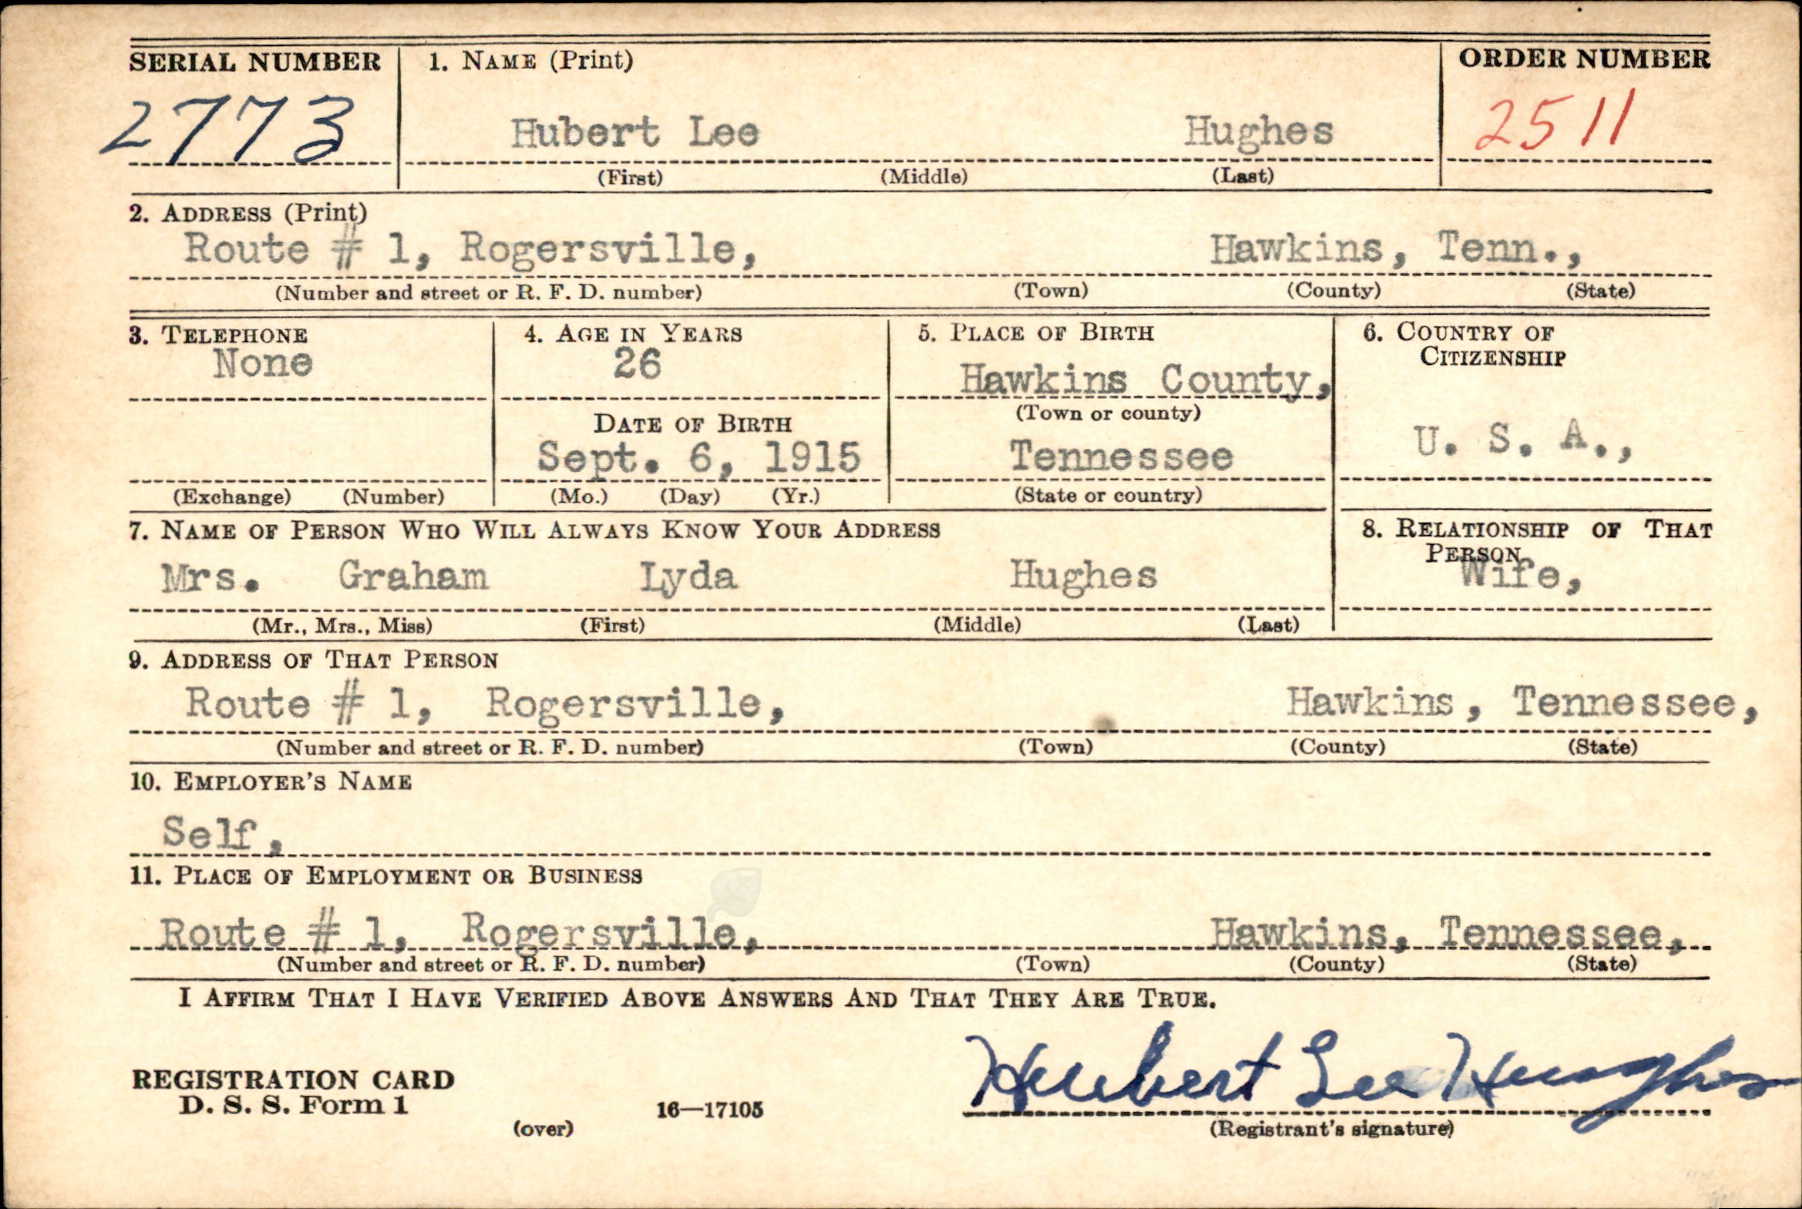 SERIAL NUMBER 1. NAME (Print) ORDER NUMBER
2773 Hubert Lee Hughes 2511
(First) (Middle) (Last)
2. ADDRESS (Print)
Route # 1, Rogersville, Hawkins, Tenn.,
(Number and street or R. F. D. number) (Town) (County) (State)
3. TELEPHONE 4. AGE IN YEARS 5. PLACE OF BIRTH 6. COUNTRY OF
CITIZENSHIP
None 26 Hawkins County,
(Town or county)
DATE OF BIRTH
Sept. 6, 1915 Tennessee U. S. A.,
(Exchange) (Number) (Mo.) (Day) (Yr.) (State or country)
7. NAME OF PERSON WHO WILL ALWAYS KNOW YOUR ADDRESS 8. RELATIONSHIP OF THAT
PERSON
Mrs. Graham Lyda Hughes Wife,
(Mr., Mrs., Miss) (First) (Middle) (Last)
9. ADDRESS OF THAT PERSON
Route # 1, Rogersville, Hawkins, Tennessee,
(Number and street or R. F. D. number) (Town) (County) (State)
10. EMPLOYER'S NAME
Self,
11. PLACE OF EMPLOYMENT OR BUSINESS
Route # 1, Rogersville, Hawkins, Tennessee,
(Number and street or R. F. D. number) (Town) (County) (State)
I AFFIRM THAT I HAVE VERIFIED ABOVE ANSWERS AND THAT THEY ARE TRUE.
Hubert Lee Hughes
REGISTRATION CARD
D. S. S. Form 1 16—17105
(over) (Registrant's signature)